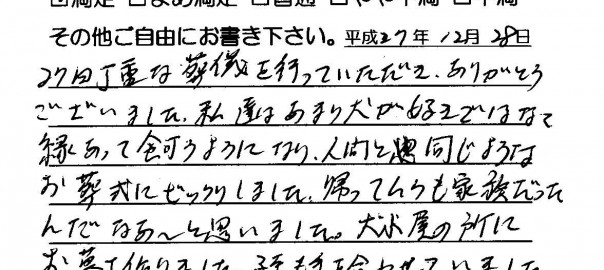 ☑満足 □まあ満足 □普通 □やや不満 □不満
その他ご自由にお書き下さい。平成27年12月28日
27日丁重な葬儀を行っていただき、ありがとう
ございました。私達はあまり犬が好きではなく
縁あって飼うようになり、人間と同じような
お葬式にビックリしました。帰ってからも家族だった
んだなあ～と思いました。犬小屋の所に
お墓を作りました。子供も手を合わせていました